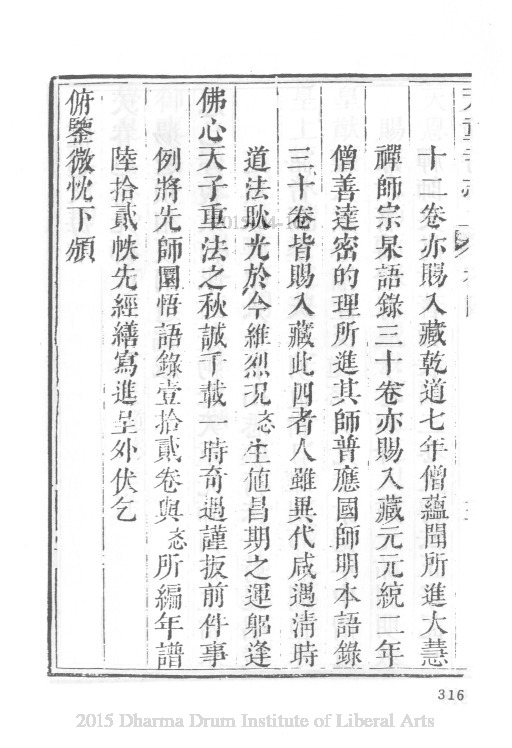 十二卷亦賜入藏乾道七年僧蘊聞所進大慧
禪師宗杲語錄三十卷亦賜入藏元元統二年
僧善達密的理所進其師普應國師明本語錄
三十卷皆賜入藏此四者人雖異代咸遇清時
道法耿光於今維烈況忞生値昌期之運躬逢
佛心天子重法之秋誠千載一時奇遇謹扳前件事
例將先師圜悟語錄壹拾貳卷與忞所編年譜
陸拾貳帙先經繕寫進呈外伏乞
俯鑒微忱下頒
316
2015 Dharma Drum Institute of Liberal Arts